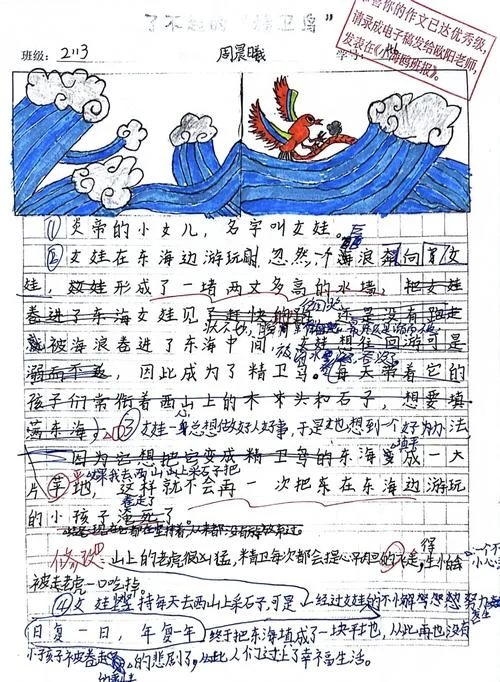 了不起的“精卫鸟”
的作文已达优秀级,
请录成电子稿发给欧阳老师,
发表在《小海鸥班报》。
班级: 2113 周晨曦
① 炎帝的小女儿,名字叫女娃。
② 女娃在东海边游玩时,忽然,一个海浪
娃,形成了一堵两丈多高的水墙,把女娃
卷进了东海女娃见了赶快的 还是没有跑走
就被海浪卷进了东海中间,女娃想往回游可是
溺而不返,因此成为了精卫鸟。每天带着它的
孩子们常衔着西山上的木头和石子,想要填
满东海 ③女娃一心总想做好人好事,于是女也想到一个好办法,
因为它想把它变成精卫鸟的东海变成一大
如果我去西山上采石子把
片草地,这样就不会再一次把东在东海边游玩
卷走了
的小孩子淹死了
修改: 山上的老虎很凶猛,精卫每次都会提心吊胆的飞走,生怕一个不小心
被老虎一口吃掉。
④女娃坚持每天去西山上采石子,可是 经过女娃的不懈努力
日复一日,年复一年 终于把东海填成了一块平地,从此再也没有
小孩子被卷走的悲剧了,从此人们过上了幸福生活。